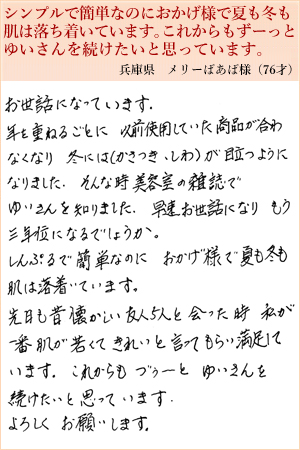 シンプルで簡単なのにおかげ様で夏も冬も
肌は落ち着いています。これからもずーっと
ゆいさんを続けたいと思っています。
兵庫県　メリーばあば様（76才）
お世話になっています.
年を重ねるごとに 以前使用していた商品が合わ
なくなり 冬には(かさつき、しわ)が目立つように
なりました. そんな時 美容室の雑誌で
ゆいさんを知りました. 早速お世話になり もう
三年位になるでしょうか。
しんぷるで簡単なのに おかげ様で夏も冬も
肌は落着いています。
先日も昔懐かしい友人5人と会った時 私が
一番肌が若くてきれいと言ってもらい満足して
います. これからも づぅーと ゆいさんを
続けたいと思っています.
よろしく お願いします.